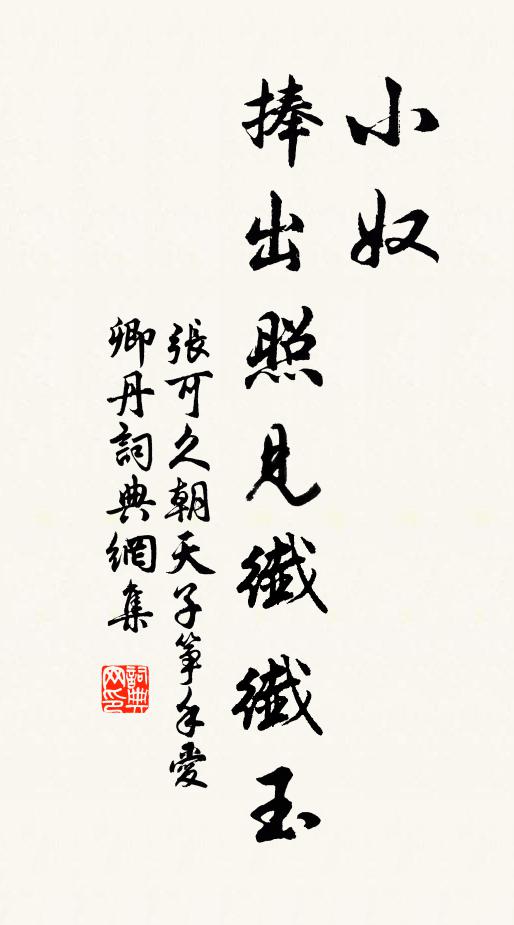 小奴
捧出照見纖纖玉
張可久朝天子箏手愛
卿丹詞典網集
詞典
网印